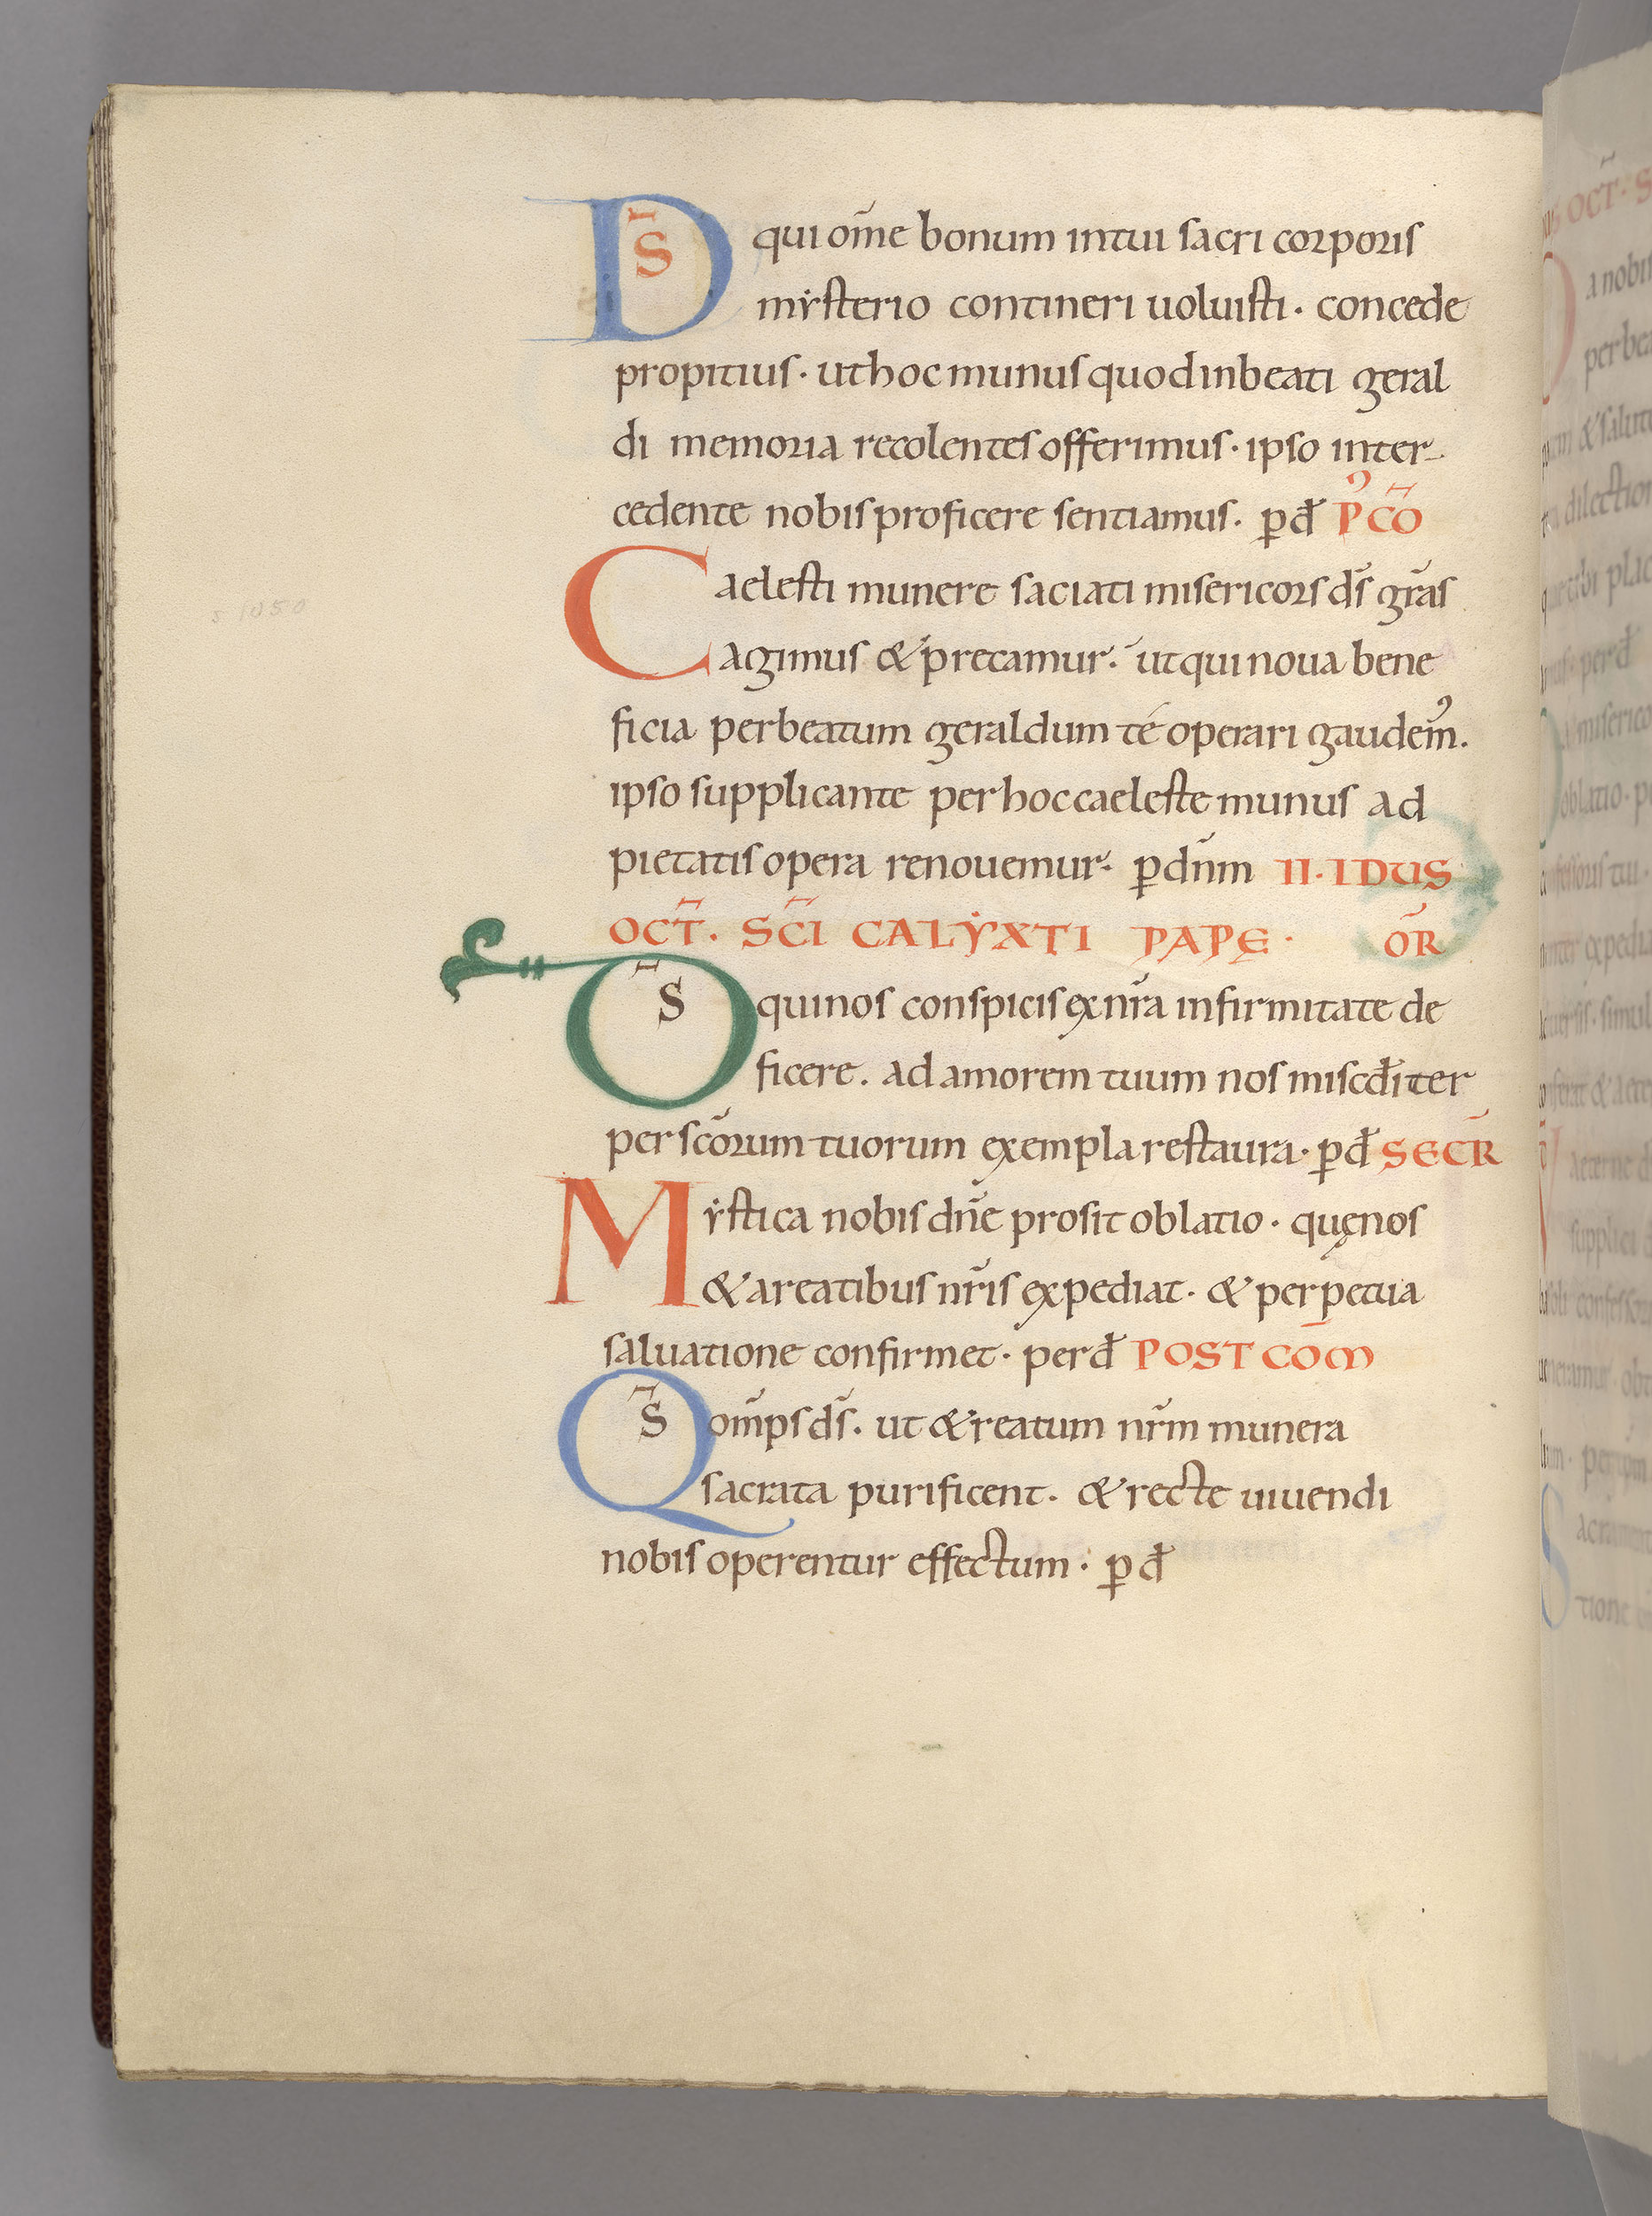 DS̄ qui om̄e bonum intui sacri corporis
mẏsterio contineri uoluisti · concede
propitius · ut hoc munus quod inbeati geral
di memoria recolentes offerimus · ipso inter-
cedente nobis proficere sentiamus · ꝑ đ P᾿ CŌ
Caelesti munere saciati misericors d̄s gr̄as
agimus & precamur · ut qui noua bene
ficia per beatum geraldum té operari gaudem᾿.
ipso supplicante per hoc caeleste munus ad
pietatis opera renouemur · ꝑ dn̄m II · IDUS
OCT̄ · SC̄I CALẎXTI PAPĘ · OR̄
DS̄ qui nos conspicis ex nr̄a infirmitate de
ficere . ad amorem tuum nos miscđiter
per sc̄orum tuorum exempla restaura · ꝑ đ SECR̄
Mẏstica nobis dn̄e prosit oblatio · quę nos
& a reatibus nr̄is expediat · & perpetua
saluatione confirmet · per đ POST COM̄
QS̄ om̄ps d̄s . ut & reatum nr̄m munera
sacrata purificent . & recte uiuendi
nobis operentur effectum · ꝑ đ